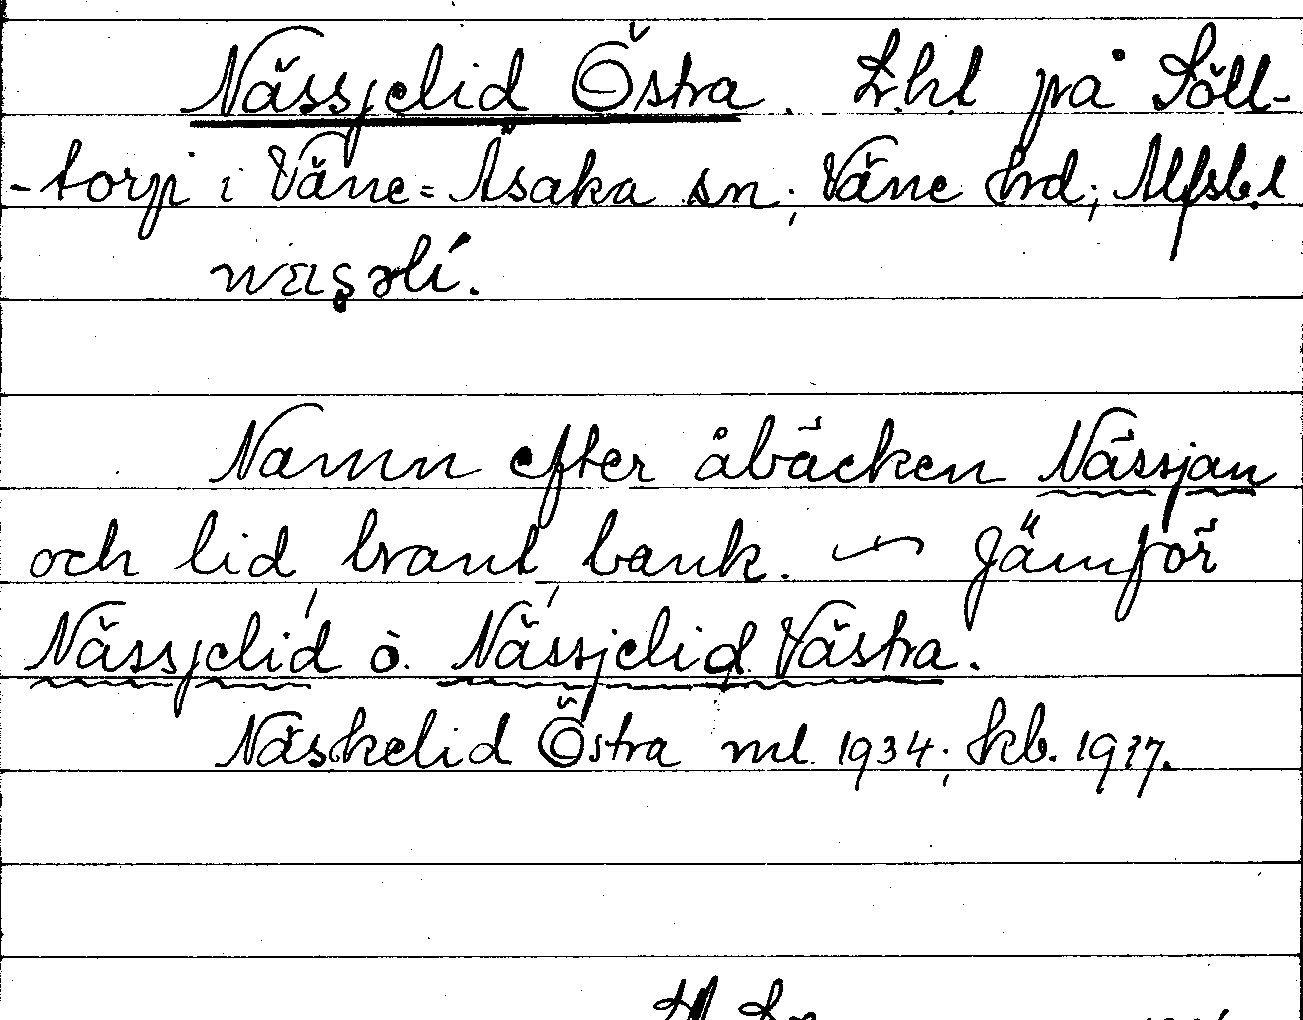 Nässjelid Östra. L.hl på Söll-
-torp i Väne=Åsaka sn; Väne hrd; Älfsb.l

Namn efter åbäcken Nässjan
och lid, brant, bank. Jämför
Nässjelid o. Nässjelid Västra.
Näskelid Östra ml 1934; kb. 1937.